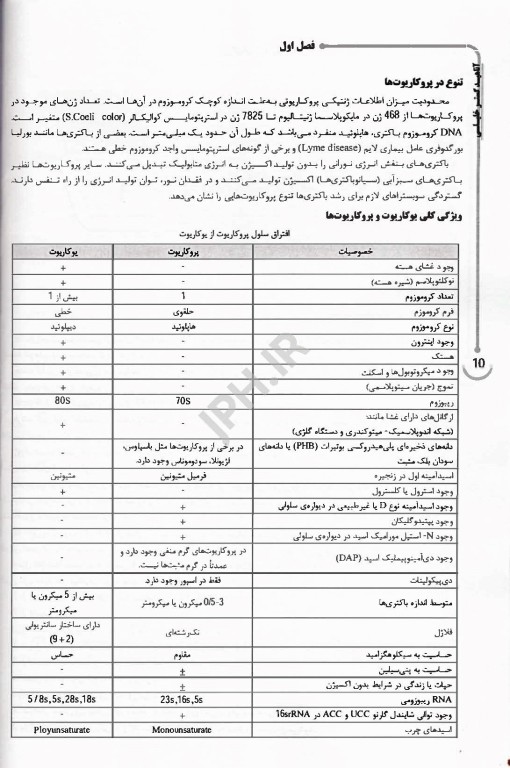 فصل اول
تنوع در پروکاریوت‌ها
محدودیت میزان اطلاعات ژنتیکی پروکاریوتی به‌علت اندازه کوچک کروموزوم در آن‌ها است. تعداد ژن‌های موجود در
پروکاریوت‌ها از 468 ژن در مایکوپلاسما ژنیتالیوم تا 7825 ژن در استرپتومایسس کوالیکالر (S.Coeli color) متغیر است.
DNA کروموزوم باکتری، هاپلوئید منفرد می‌باشد که طول آن حدود یک میلی‌متر است. بعضی از باکتری‌ها مانند بورلیا
بورگدوفری عامل بیماری لایم (Lyme disease) و برخی از گونه‌های استرپتومایسس واجد کروموزوم خطی هستند.
باکتری‌های بنفش انرژی نورانی را بدون تولید اکسیژن به انرژی متابولیک تبدیل می‌کنند. سایر پروکاریوت‌ها نظیر
باکتری‌های سبزآبی (سیانوباکتری‌ها) اکسیژن تولید می‌کنند و در فقدان نور، توان تولید انرژی را از راه تنفس دارند.
گستردگی سوبستراهای لازم برای رشد باکتری‌ها تنوع پروکاریوت‌هایی را نشان می‌دهد.
ویژگی کلی یوکاریوت و پروکاریوت‌ها
افتراق سلول پروکاریوت از یوکاریوت
خصوصیات پروکاریوت یوکاریوت
وجود غشای هسته - +
نوکلئوپلاسم (شیره هسته) - +
تعداد کروموزوم 1 بیش از 1
فرم کروموزم حلقوی خطی
نوع کروموزوم هاپلوئید دیپلوئید
وجود اینترون - +
هستک - +
وجود میکروتوبول‌ها و اسکلت - +
تموج (جریان سیتوپلاسمی) - +
ریبوزوم 70S 80S
ارگانل‌های دارای غشا مانند:
(شبکه اندوپلاسمیک- میتوکندری و دستگاه گلژی) - +
دانه‌های ذخیره‌ای پلی‌هیدروکسی بوتیرات (PHB) یا دانه‌های در برخی از پروکاریوت‌ها مثل باسیلوس، -
سودان بلک مثبت لژیونلا، سودوموناس وجود دارد.
اسیدآمینه اول در زنجیره فرمیل متیونین متیونین
وجود استرول یا کلسترول - +
وجود اسیدآمینه نوع D یا غیرطبیعی در دیواره‌ی سلولی + -
وجود پپتیدوگلیکان + -
وجود N- استیل مورامیک اسید در دیواره‌ی سلولی + -
وجود دی‌آمینوپیملیک اسید (DAP) در پروکاریوت‌های گرم منفی وجود دارد و -
عمدتاً در گرم مثبت‌ها نیست.
دی‌پیکولینات فقط در اسپور وجود دارد. -
متوسط اندازه باکتری‌ها 0/5-3 میکرون یا میکرومتر بیش از 5 میکرون یا
میکرومتر
فلاژل تک‌رشته‌ای دارای ساختار سانتریولی
(9+2)
حساسیت به سیکلوهگزامید مقاوم حساس
حساسیت به پنی‌سیلین ± -
حیات یا زندگی در شرایط بدون اکسیژن ± -
RNA ریبوزومی 23s,16s,5s 5/8s,5s,28s,18s
وجود توالی شایندل گارنو UCC و ACC در 16srRNA + -
اسیدهای چرب Monounsaturate Ployunsaturate
10
JPH.IR